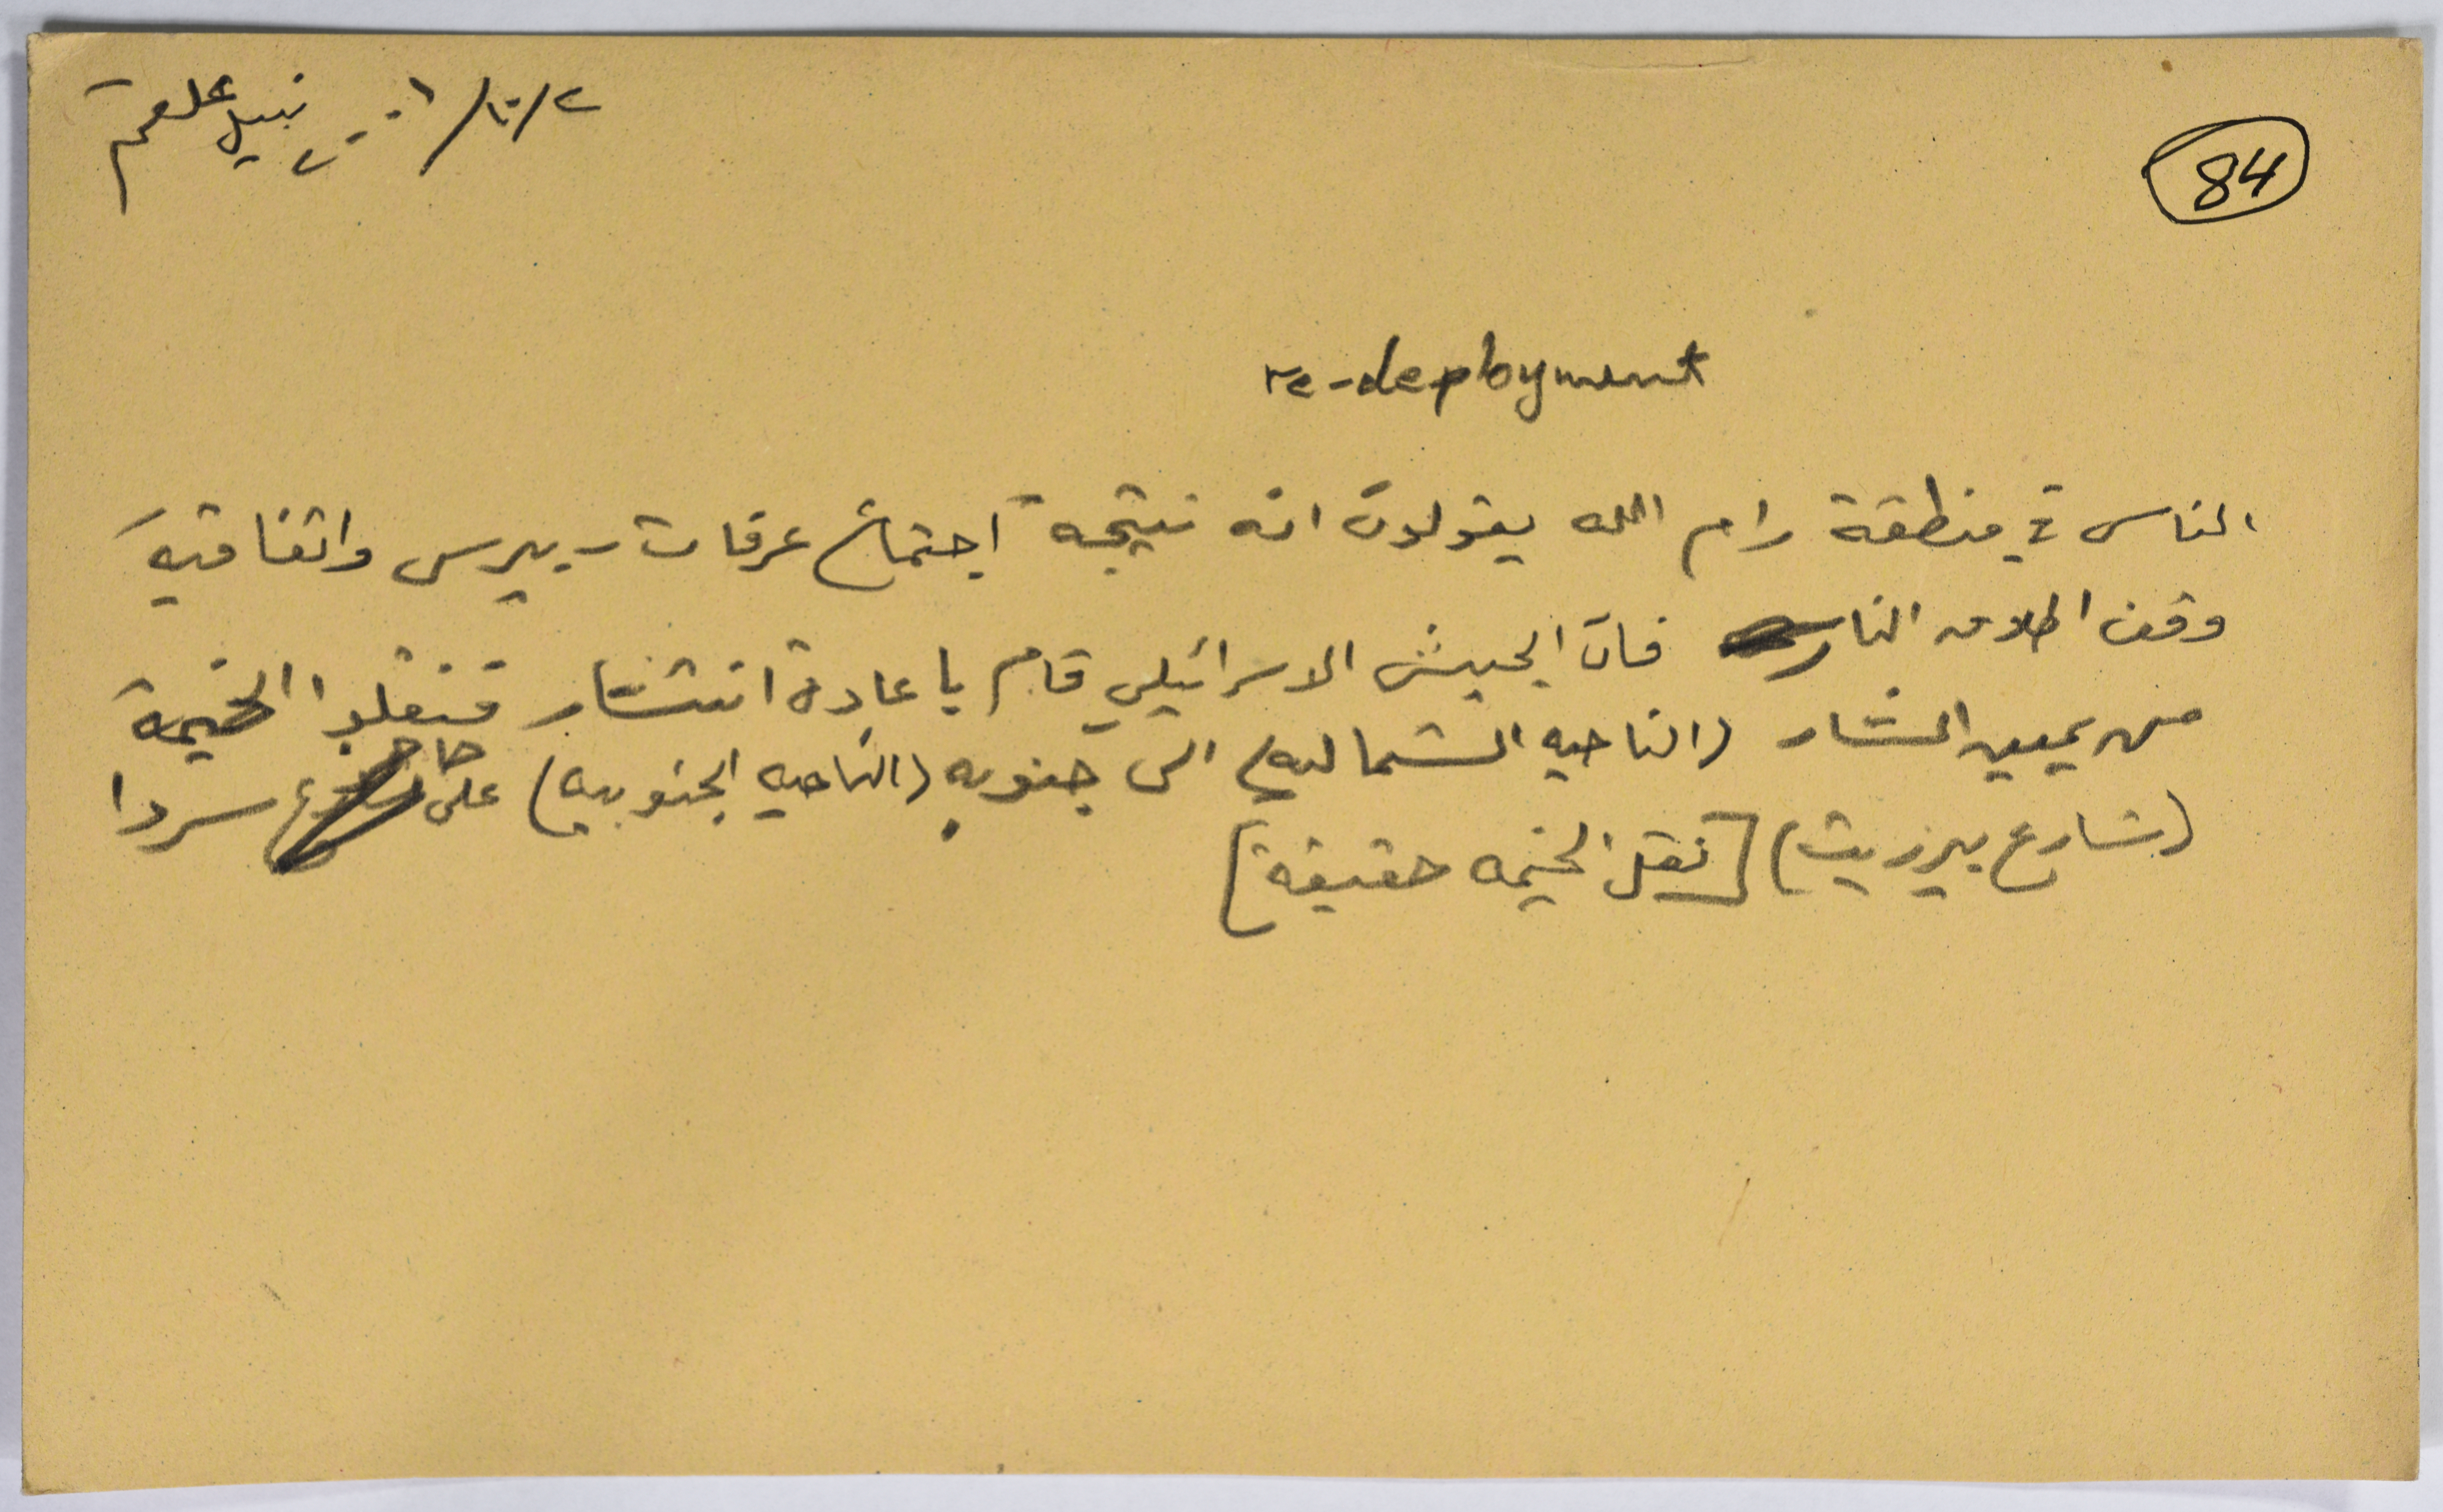 84
٢/١٠/٢٠٠١ نبيل علقم
re-deployment
الناس في منطقة رام الله يقولون انه نتيجة اجتماع عرفات - بيرس واتفاقية
وقف اطلاق النار فان الجيش الاسرائيلي قام باعادة انتشار فنقلوا الخيمة
من يمين الشارع (الناحيه الشماليه) الى جنوبه (الناحيه الجنوبيه) على حاجز سردا
(شارع بيرزيت) [نقل الخيمه حقيقة]